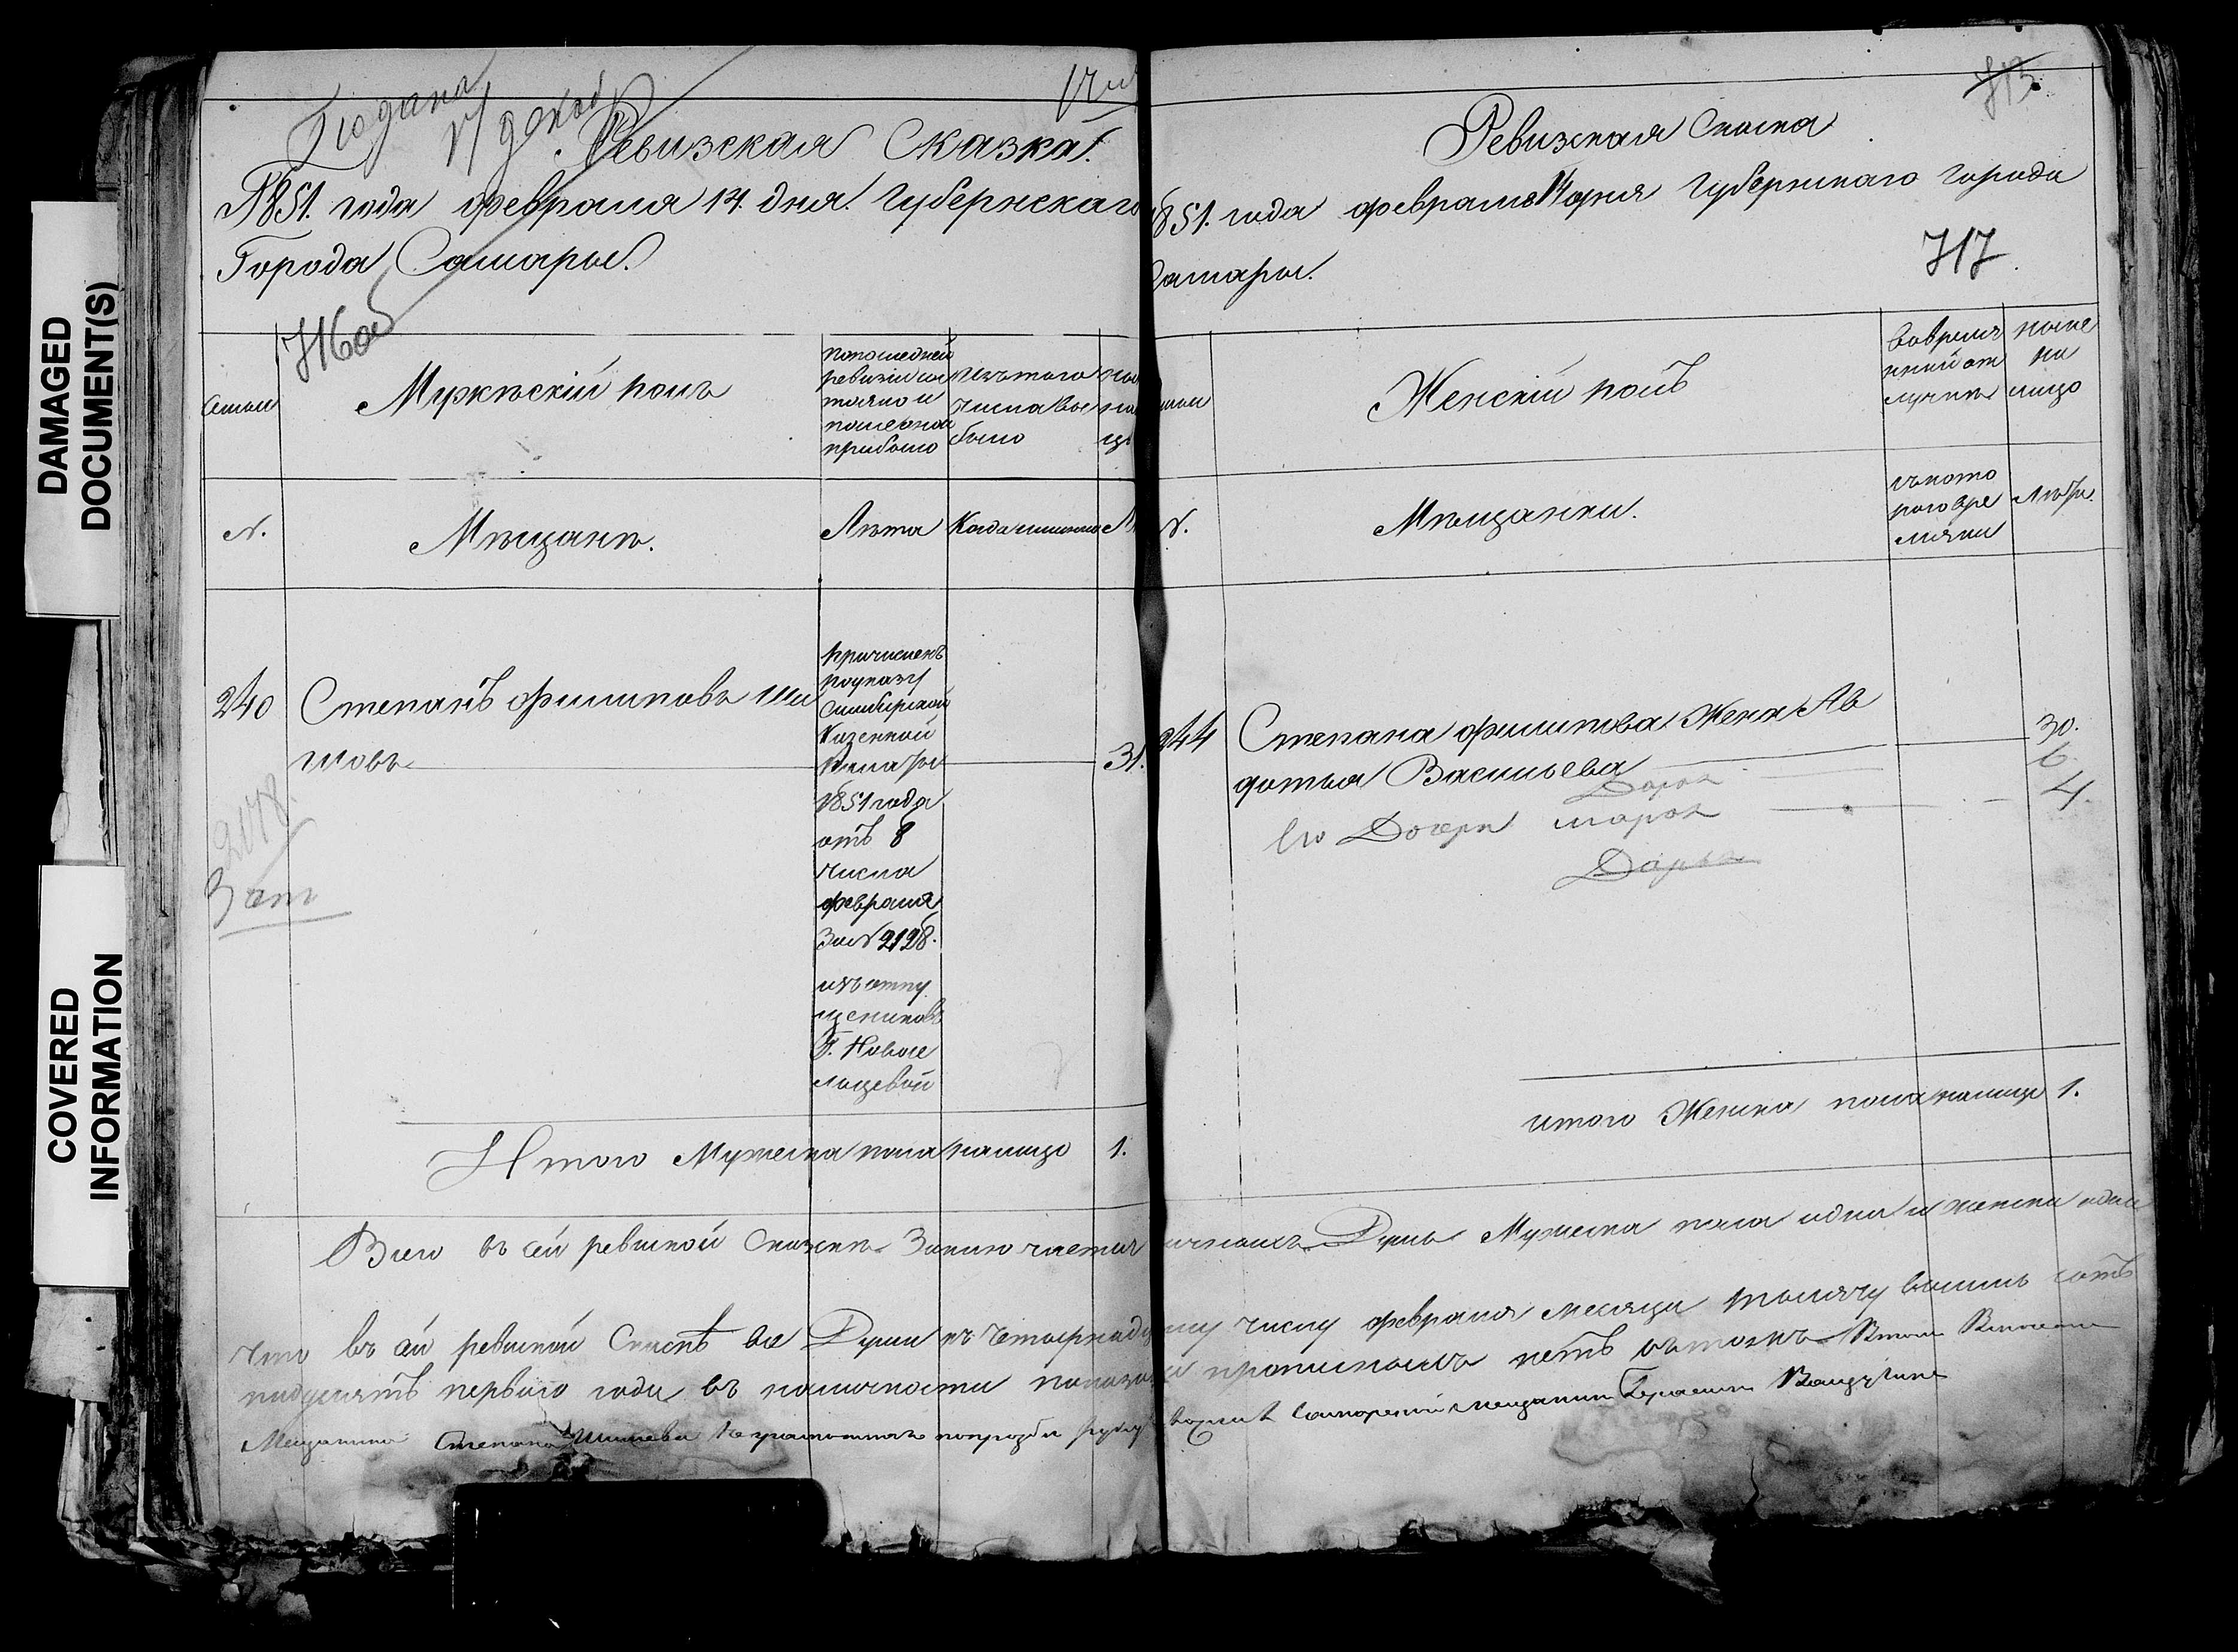 DAMAGED
DOCUMENT(S)
COVERED
INFORMATION
Подана
Ревизская Сказка.
1851. года февраля 14. дня. Губернскаго
Города Самары.
716 об
Мужескій полъ
по последней
ревизіи сос
тояло и
после оной
прибыло
Изъ того
числа вы
было
N.
Мѣщанѣ.
Лѣта
Когда именно
240
Степанъ Филиповъ Ши
шовъ
31.
Причисленъ
по указу
Симбирской
Казенной
Палаты
1851 года
отъ 8
числа
февраля
За N 2128.
изъ отпу
щениковъ
Г. Новосе
льцевой
Итого Мужеска пола на лицо 1.
713
Ревизская Сказка
1851. года февраля 14 дня Губернскаго города
Самары.
717.
Женскій полъ
Во време
нной от
лучке
ныне
на
лицо
N.
Мѣщанки.
съ кото
раго вре
мяни
Лѣты.
244
Степана Филипова Жена Ав
дотья Васильева
30.
6.
Его Дочери
4.
Дарья
итого Женска пола на лицо 1.
Всего въ сей ревиской Сказкѣ Заключается Душъ Мужеска пола одна и женска одна
Что въ сей ревиской Сказкѣ все Души къ четырнадцатому числу февраля месяца тысячу восемь сотъ
пидесятъ первого года въ наличности показаны и прописныхъ нетъ въ томъ
Мещанина Степана Шишова неграмотнаго по прозбе руку Самарский мещанин Герасим